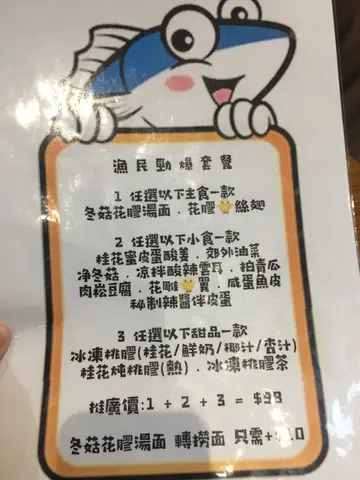 漁民勁爆套餐
1 任選以下主食一款
冬菇花膠湯面．花膠🐥絲翅
2 任選以下小食一款
桂花蜜皮蛋酸姜．郊外油菜
净冬菇．凉拌酸辣雲耳．拍青瓜
肉崧豆腐．花雕🐥翼．咸蛋魚皮
秘制辣醬伴皮蛋
3 任選以下甜品一款
冰凍桃膠(桂花/鮮奶/椰汁/杏汁)
桂花炖桃膠(熱)．冰凍桃膠茶
推廣價:1 + 2 + 3 = $99
冬菇花膠湯面 轉撈面 只需+